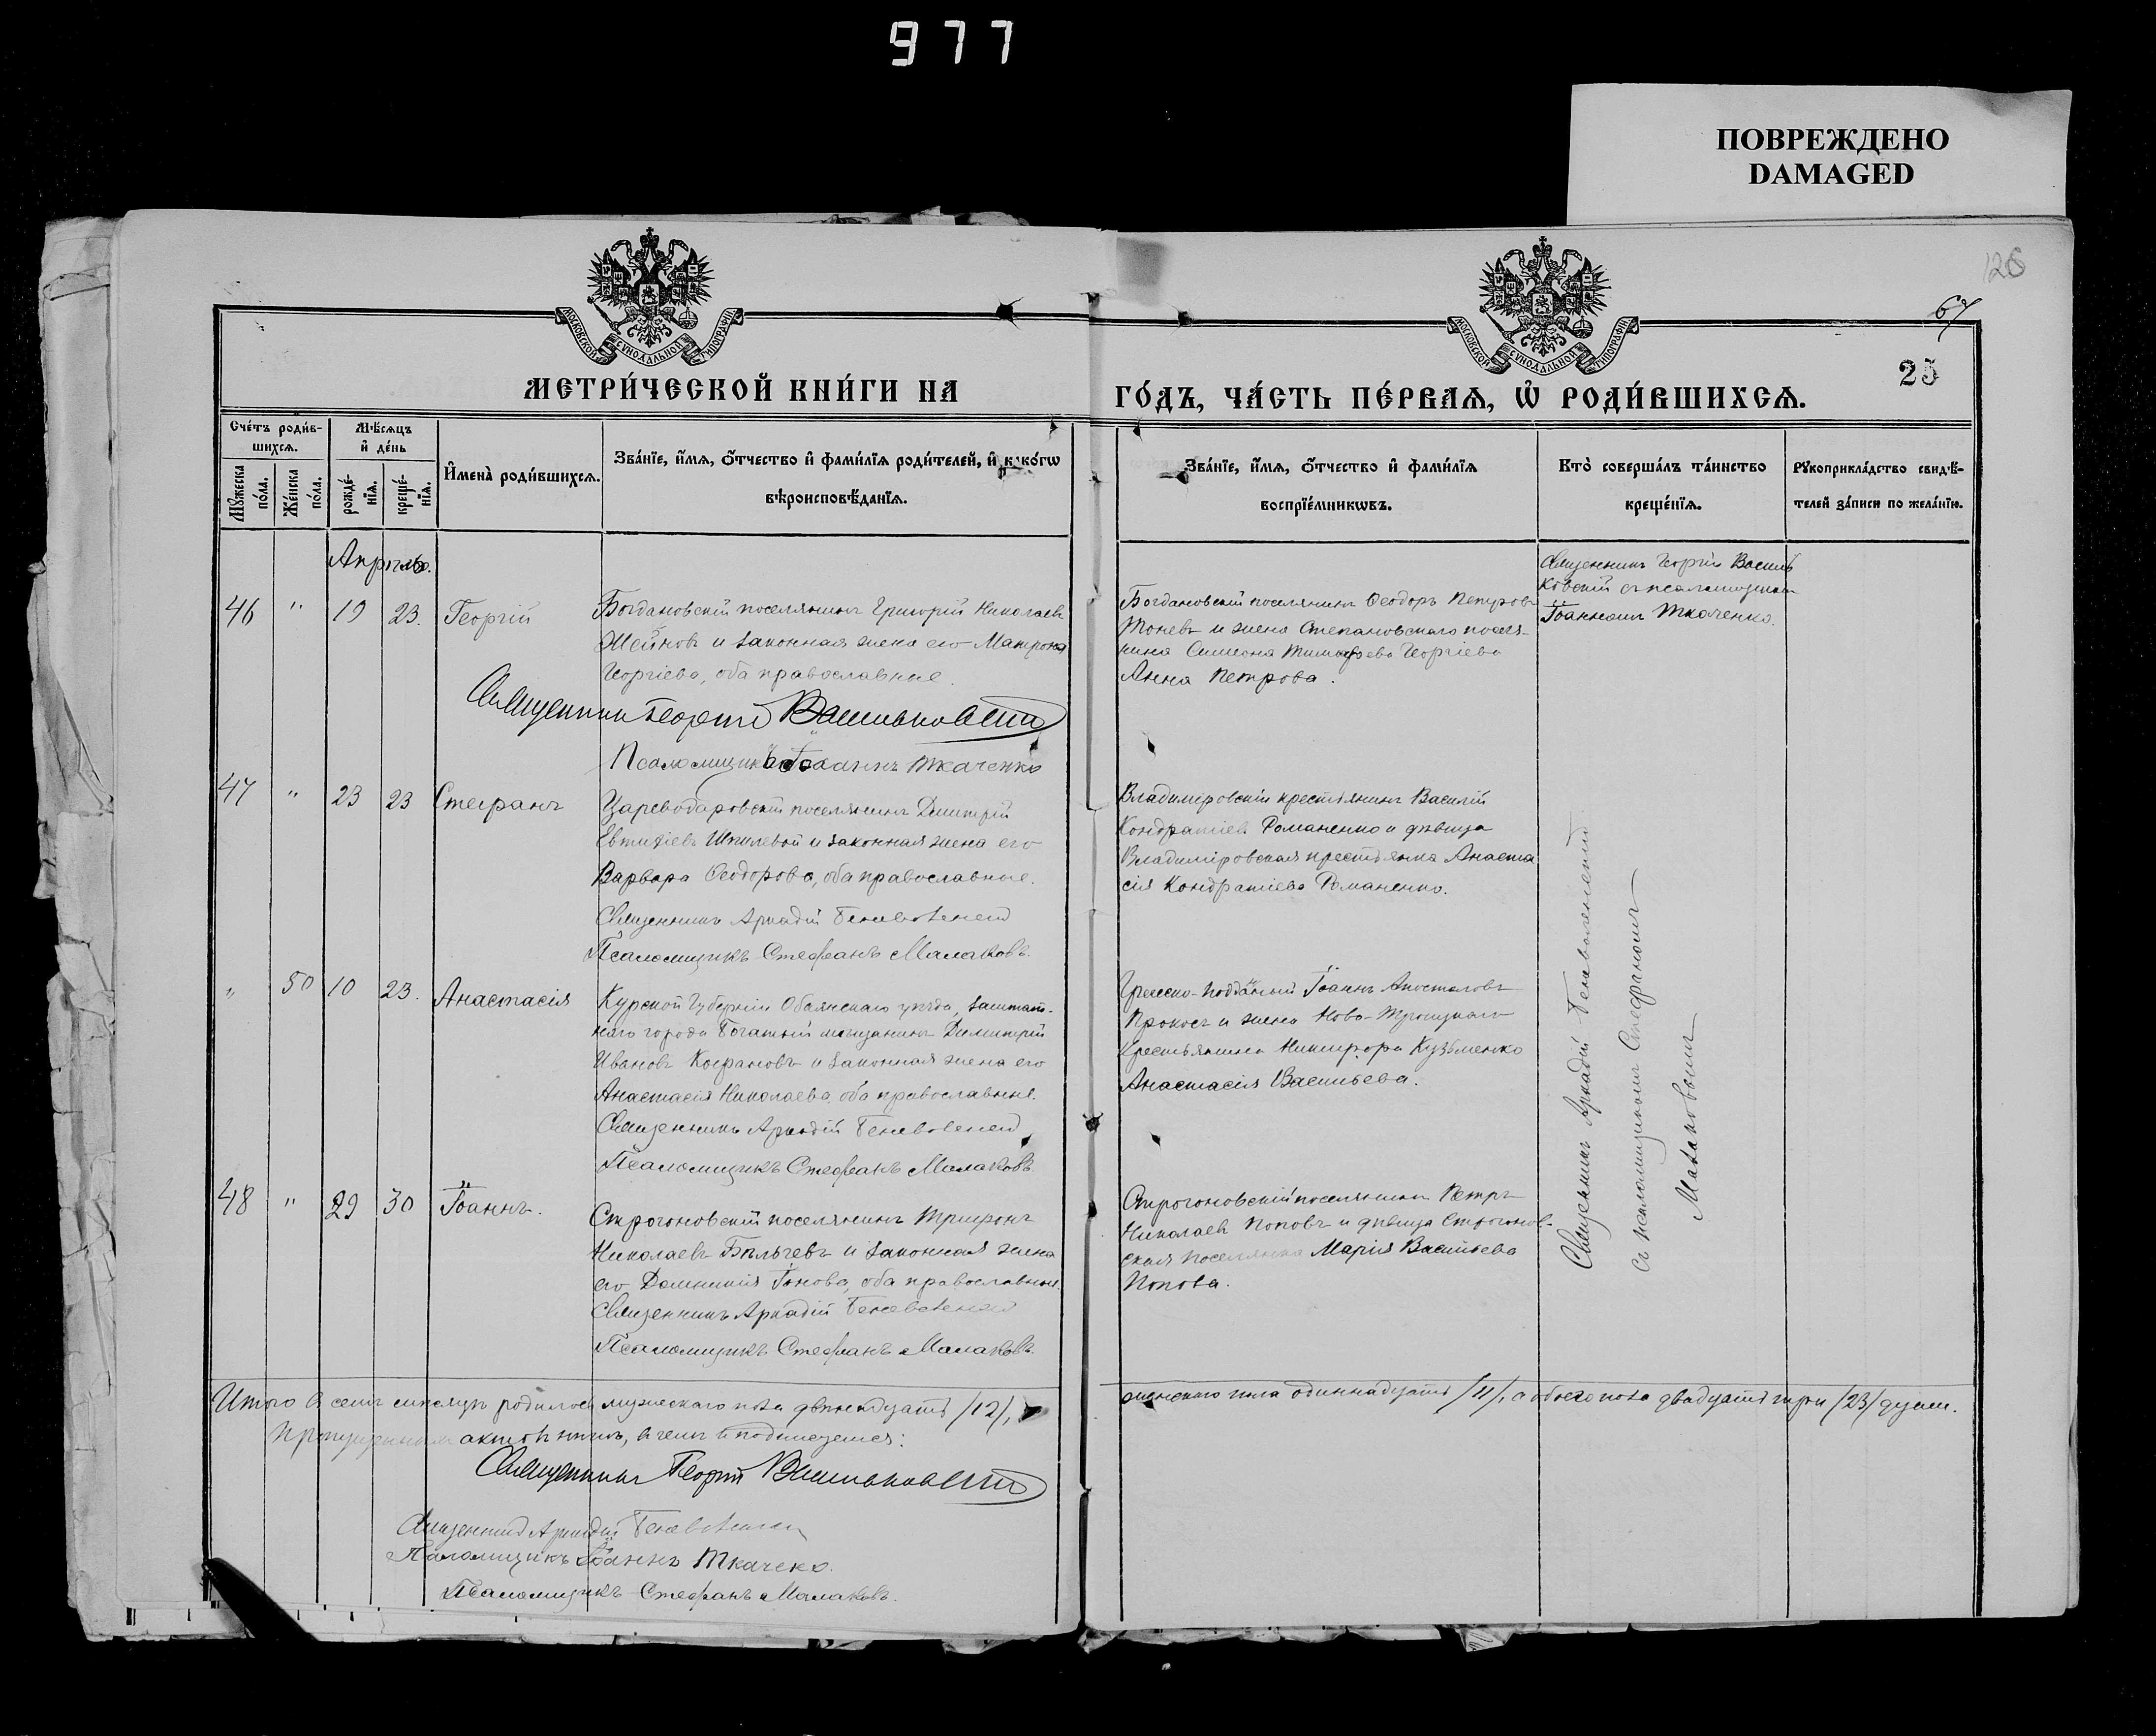 977
ПОВРЕЖДЕНО
DAMAGED
126
67
25
МОСКОВСКОЙ СУНОДАЛЬНОЙ ТИПОГРАФІИ
МОСКОВСКОЙ СУНОДАЛЬНОЙ ТИПОГРАФІИ
МЕТРИ́ЧЕСКОЙ КНИ́ГИ НА
ГО́ДЪ, ЧА́СТЬ ПЕ́РВАѦ, Ѡ҆ РОДИ́ВШИХСѦ.
Сче́тъ роди́в-
шихсѧ.
Мѣ́сѧцъ
и҆ де́нь
Мꙋжеска по́ла.
Же́нска по́ла.
рожде́-нїѧ.
креще́-нїѧ.
И҆мена̀ роди́вшихсѧ.
Зва́нїе, и҆́мѧ, ѻ҆́тчество и҆ фами́лїѧ роди́телей, и҆ како́гѡ
вѣроисповѣ́данїѧ.
Зва́нїе, и҆́мѧ, ѻ҆́тчество и҆ фами́лїѧ
воспрїе́мникѡвъ.
Кто̀ соверша́лъ та́инство
креще́нїѧ.
Рꙋкоприкла́дство свидѣ́-
телей за́писи по жела́нїю.
Апрѣль.
46 " 19 23. Георгій
Богдановскій поселянинъ Григорій Николаевъ
Жейновъ и законная жена его Матрона
Георгіева, оба православные.
Священникъ Георгій Васильковскій
Псаломщикъ Іоаннъ Ткаченко
Богдановскій поселянинъ Ѳеодоръ Петровъ
Тоневъ и жена Степановскаго поселя-
нина Симеона Тимоѳеева Георгіева
Анна Петрова.
Священникъ Георгій Василь
ковскій съ псаломщикомъ
Іоанномъ Ткаченко.
47 " 23 23 Стефанъ
Цареводаровскій поселянинъ Димитрій
Евтихіевъ Шпилевой и законная жена его
Варвара Ѳеодорова, оба православные.
Священникъ Аркадій Беневоленскій
Псаломщикъ Стефанъ Малаковъ.
Владиміровскій крестьянинъ Василій
Кондратіевъ Романенко и дѣвица
Владиміровская крестьянка Анаста
сія Кондратіева Романенко.
" 50 10 23. Анастасія
Курской Губерніи Обоянскаго уѣзда, заштат-
наго города Богатый мѣщанинъ Димитрій
Ивановъ Кофановъ и законная жена его
Анастасія Николаева, оба православные.
Священникъ Аркадій Беневоленскій
Псаломщикъ Стефанъ Малаковъ.
Греческо-подданый Іоаннъ Апостоловъ
Прокосъ и жена Ново-Троицкаго
крестьянина Никифора Кузьменко
Анастасія Васильева.
48 " 29 30 Іоаннъ.
Строгоновскій поселянинъ Трифонъ
Николаевъ Бѣльчевъ и законная жена
его Домникія Іонова, оба православные.
Священникъ Аркадій Беневоленскій
Псаломщикъ Стефанъ Малаковъ.
Строгоновскій поселянинъ Петръ
Николаевъ Поповъ и дѣвица Строгонов-
ская поселянка Марія Васильева
Попова.
Священникъ Аркадій Беневоленскій
съ псаломщикомъ Стефаномъ
Малаковымъ
Итого въ семъ мѣсяцѣ родилось мужескаго пола двѣнадцать /12/,
женскаго пола одиннадцать /11/, а обоего пола двадцать три /23/ душъ.
Пропущенныхъ актовъ нѣтъ, въ чемъ и подписуемся:
Священникъ Георгій Васильковскій
Священникъ Аркадій Беневоленскій
Псаломщикъ Іоаннъ Ткаченко.
Псаломщикъ Стефанъ Малаковъ.